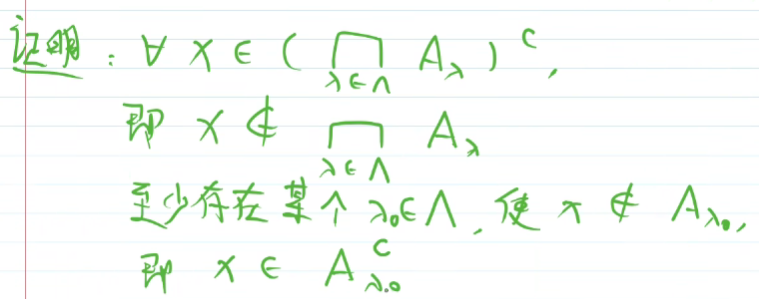 证明：∀ x ∈ ( ⋂_{λ∈Λ} A_λ )^c,
即 x ∉ ⋂_{λ∈Λ} A_λ
至少存在某个 λ₀∈Λ, 使 x ∉ A_{λ₀},
即 x ∈ A_{λ₀}^c